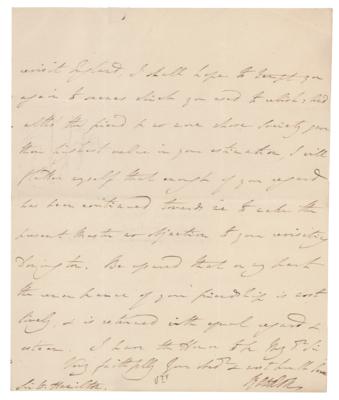 revisit England, I shall hope to tempt you
again to scenes which you used to which; and
altho' the friend is no more whose society gave
them highest value in your estimation, I will
flatter myself that enough of your regard
has been continued towards me to make the
present Master no objection to your revisiting
Be assured that on my part
the remembrance of your friendship is most
lively, & is returned with equal regard &
esteem. I have the Honor to be My Dr Sir
Very faithfully Your
Sir W. Hamilton